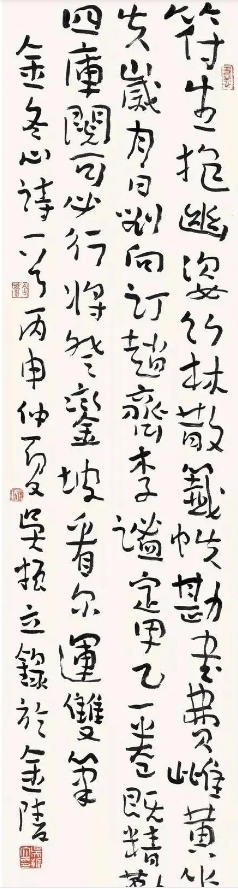 符生抱幽姿竹林散籤帙勘書費雌黃
失歲有日劉向訂趙齊李謐定甲乙一卷既精
四庫闕可必行將登鑾坡看爾運雙筆
金冬心詩一首丙申仲夏吳振立錄於金陵